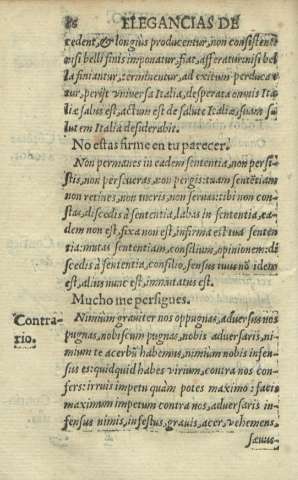 86 ELEGANCIAS DE
cedent, & longius producentur, non consistent
nisi belli finis imponatur, fiat, afferatur: nisi bel
la finiantur, terminentur, ad exitum perducā
tur, perijt vniuersa Italia, desperata omnis Ita
liæ salus est, actum est de salute Italiæ, suam sa
lutem Italia desiderabit.
No estas firme en tu parecer.
Non permanes in eadem sententia, non persi
stis, non perseueras, non pergis: tuam sentētiam
non retines, non tueris, non seruas: tibi non con-
stas, discedis à sententia, labas in sententia, ea-
dem non est, fixa non est, infirma est tua senten
tia: mutas sententiam, consilium, opinionem: di
scedis à sententia, consilio, sensus tuus nō idem
est, alius nunc est, immutatus est.
Mucho me persigues.
Contra-
rio.
Nimium grauiter nos oppugnas, aduersus nos
pugnas, nobiscum pugnas, nobis aduersaris, ni-
mium te acerbū habemus, nimium nobis infen-
sus es: quidquid habes virium, contra nos con-
fers: irruis impetu quàm potes maximo: facis
maximum impetum contra nos, aduersaris in-
fensus nimis, infestus, grauis, acer, vehemens,
sæuus-